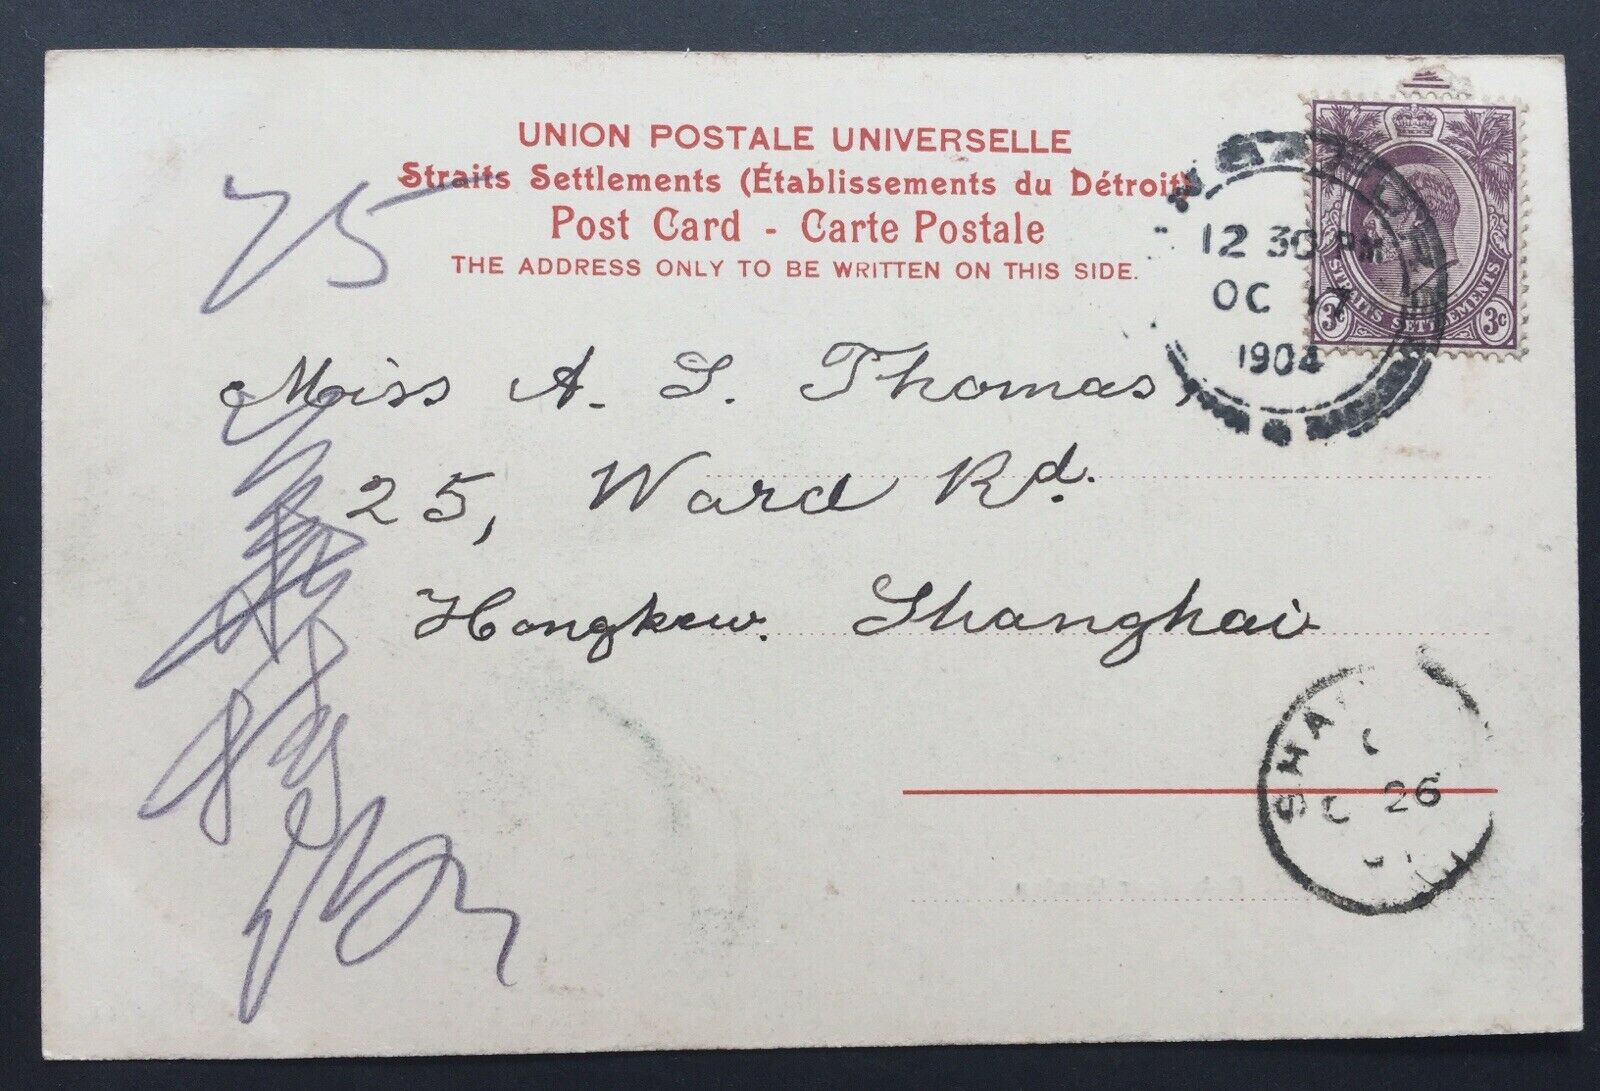 UNION POSTALE UNIVERSELLE
Straits Settlements (Établissements du Détroit)
Post Card - Carte Postale
THE ADDRESS ONLY TO BE WRITTEN ON THIS SIDE.
75
12 30 PM
OC 17
1904
STRAITS SETTLEMENTS
3c 3c
Miss A. S. Thomas,
25, Ward Rd.
Hongkew. Shanghai
SHA
26